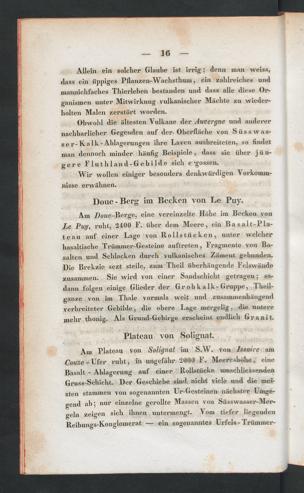 — 16 —
Allein ein solcher Glaube ist irrig; denn man weiss,
dass ein üppiges Pflanzen-Wachsthum, ein zahlreiches und
mannichfaches Thierleben bestanden und dass alle diese Or-
ganismen unter Mitwirkung vulkanischer Mächte zu wieder-
holten Malen zerstört worden.
Obwohl die ältesten Vulkane der Auvergne und anderer
nachbarlicher Gegenden auf der Oberfläche von Süsswas-
ser-Kalk-Ablagerungen ihre Laven ausbreiteten, so findet
man dennoch minder häufig Beispiele, dass sie über jün-
gere Fluthland-Gebilde sich ergossen.
Wir wollen einiger besonders denkwürdigen Vorkomm-
nisse erwähnen.
Doue-Berg im Becken von Le Puy.
Am Doue-Berge, eine vereinzelte Höhe im Becken von
Le Puy, ruht, 2400 F. über dem Meere, ein Basalt-Pla-
teau auf einer Lage von Rollstücken, unter welcher
basaltische Trümmer-Gesteine auftreten, Fragmente von Ba-
salten und Schlacken durch vulkanisches Zäment gebunden.
Die Brekzie sezt steile, zum Theil überhängende Felswände
zusammen. Sie wird von einer Sandschicht getragen; so-
dann folgen einige Glieder der Grobkalk-Gruppe, Theil-
ganze von im Thale vormals weit und zusammenhängend
verbreiteter Gebilde, die obere Lage mergelig, die untere
mehr thonig. Als Grund-Gebirge erscheint endlich Granit.
Plateau von Solignat.
Am Plateau von Solignat im S.W. von Issoire am
Couze-Ufer ruht, in ungefähr 2000 F. Meereshöhe, eine
Basalt-Ablagerung auf einer Rollstücke umschliessenden
Gruss-Schicht. Der Geschiebe sind nicht viele und die mei-
sten stammen von sogenannten Ur-Gesteinen nächster Umge-
gend ab; nur einzelne gerollte Massen von Süsswasser-Mer-
geln zeigen sich ihnen untermengt. Vom tiefer liegenden
Reibungs-Konglomerat — ein sogenanntes Urfels-Trümmer-